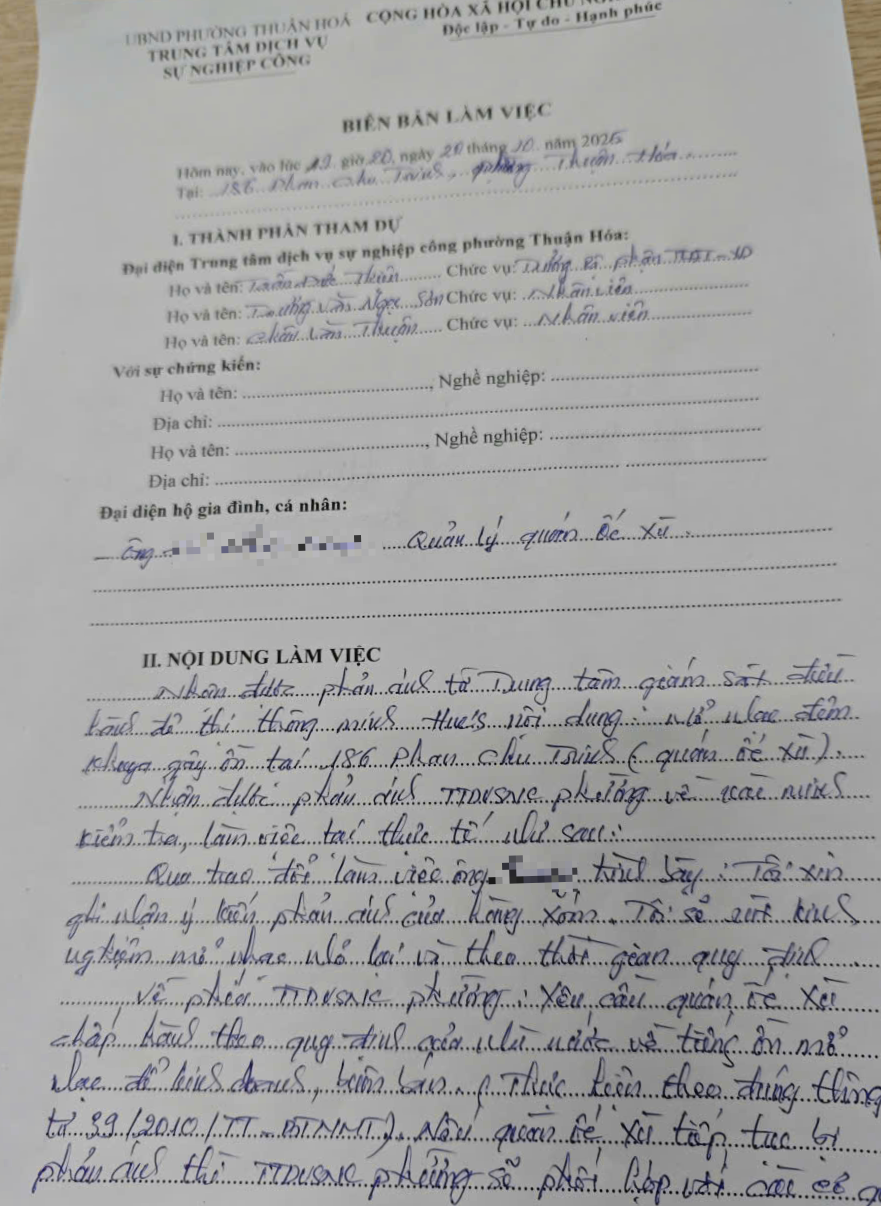 UBND PHƯỜNG THUẬN HOÁ CỘNG HÒA XÃ HỘI CHỦ
TRUNG TÂM DỊCH VỤ Độc lập - Tự do - Hạnh phúc
SỰ NGHIỆP CÔNG
BIÊN BẢN LÀM VIỆC
Hôm nay, vào lúc 19 giờ 20, ngày 20 tháng 10 năm 2025
Tại: 186 Phan Chu Trinh, phường Thuận Hóa
I. THÀNH PHẦN THAM DỰ
Đại diện Trung tâm dịch vụ sự nghiệp công phường Thuận Hóa:
Họ và tên: Đức Chức vụ: Trưởng Bộ phận
Họ và tên: Trương Văn Ngọc Sơn Chức vụ: Nhân viên
Họ và tên: Văn Thuận Chức vụ: Nhân viên
Với sự chứng kiến:
Họ và tên: , Nghề nghiệp:
Địa chỉ:
Họ và tên: , Nghề nghiệp:
Địa chỉ:
Đại diện hộ gia đình, cá nhân:
- Ông Quản lý quán Ế Xù.
II. NỘI DUNG LÀM VIỆC
Nhận được phản ánh từ Trung tâm giám sát điều
hành đô thị thông minh Huế nội dung: mở nhạc đêm
khuya gây ồn tại 186 Phan Chu Trinh (quán Ế Xù).
Nhận được phản ánh TTDVSNC phường về xác minh
kiểm tra, làm việc tại thực tế như sau:
Qua trao đổi làm việc ông trình bày: Tôi xin
ghi nhận ý kiến phản ánh của hàng xóm. Tôi sẽ rút kinh
nghiệm mở nhạc nhỏ lại và theo thời gian quy định
Về phía TTDVSNC phường: Yêu cầu quán Ế Xù
chấp hành theo quy định của nhà nước về tiếng ồn mở
nhạc để kinh doanh, buôn bán. (Thực hiện theo đúng thông
tư 39/2010/TT-BTNMT). Nếu quán Ế Xù tiếp tục bị
phản ánh thì TTDVSNC phường sẽ phối hợp với các cơ